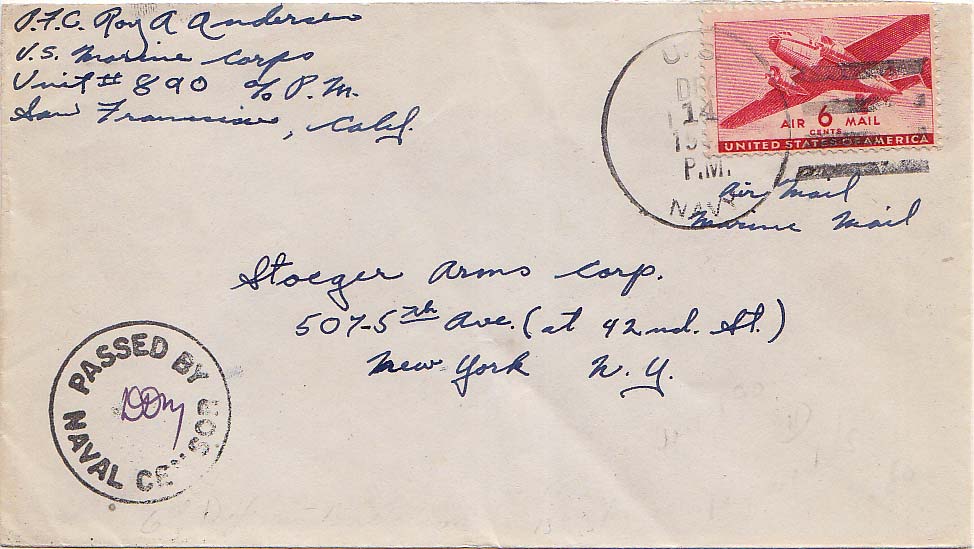 P.F.C. Roy A Andersen
U.S. Marine Corps
Unit # 890 c/o P.M.
San Francisco, Calif.
U.S.
DEC
14
P.M.
NAVY
AIR 6 MAIL
CENTS
UNITED STATES OF AMERICA
Air Mail
Marine Mail
Stoeger Arms Corp.
507-5th Ave. (at 42nd. St.)
New York N.Y.
PASSED BY
NAVAL CENSOR